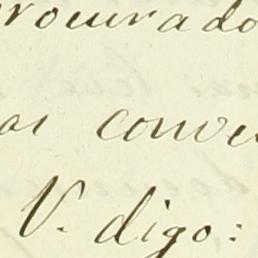 rocurado
as conve
V. digo: